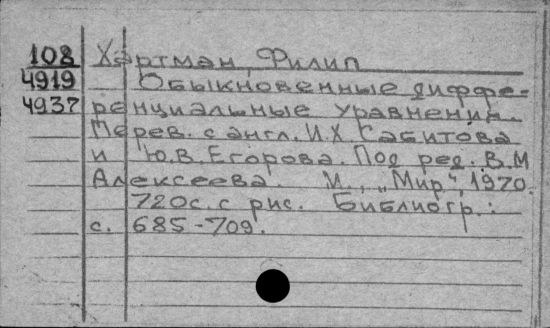 108 Хартман, Филип
4919 Обыкновенные диффе-
4937 ренциальные уравнения.
Перев. с англ. И.Х Сабитова
и Ю.В. Егорова. Под ред. В.М
Алексеева. М., „Мир", 1970.
720с. с рис. Библиогр.:
с. 685-709.